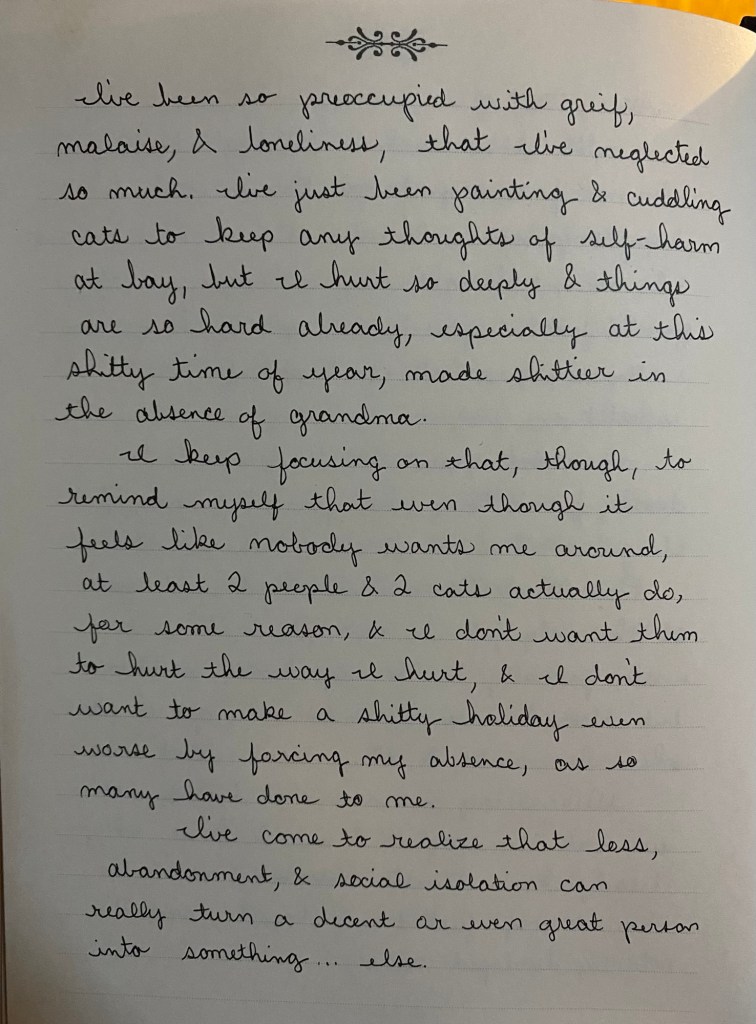 I've been so preoccupied with greif,
malaise, & loneliness, that I've neglected
so much. I've just been painting & cuddling
cats to keep any thoughts of self-harm
at bay, but I hurt so deeply & things
are so hard already, especially at this
shitty time of year, made shittier in
the absence of grandma.
I keep focusing on that, though, to
remind myself that even though it
feels like nobody wants me around,
at least 2 people & 2 cats actually do,
for some reason, & I don't want them
to hurt the way I hurt, & I don't
want to make a shitty holiday even
worse by forcing my absence, as so
many have done to me.
I've come to realize that loss,
abandonment, & social isolation can
really turn a decent or even great person
into something... else.